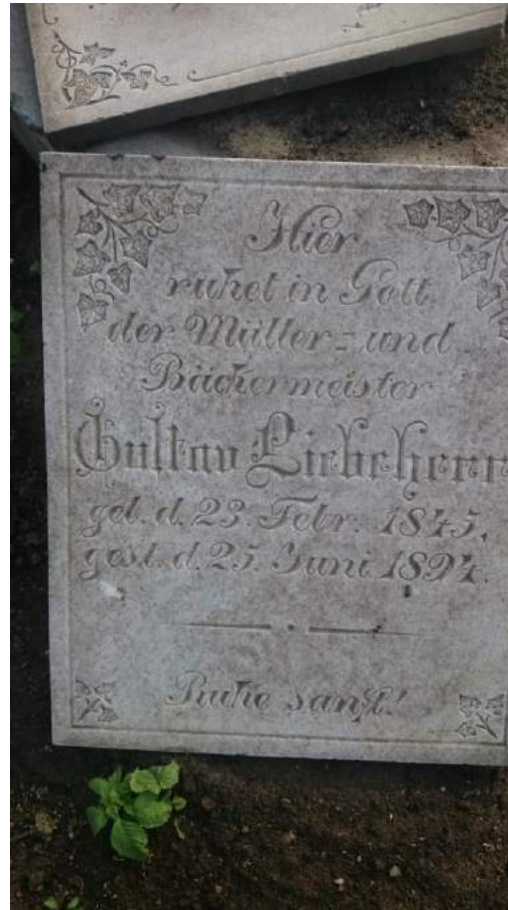 Hier
ruhet in Gott
der Müller- und
Bäckermeister
Gustav Liebeherr
geb. d. 23. Febr. 1845,
gest. d. 25. Juni 1894.
Ruhe sanft!